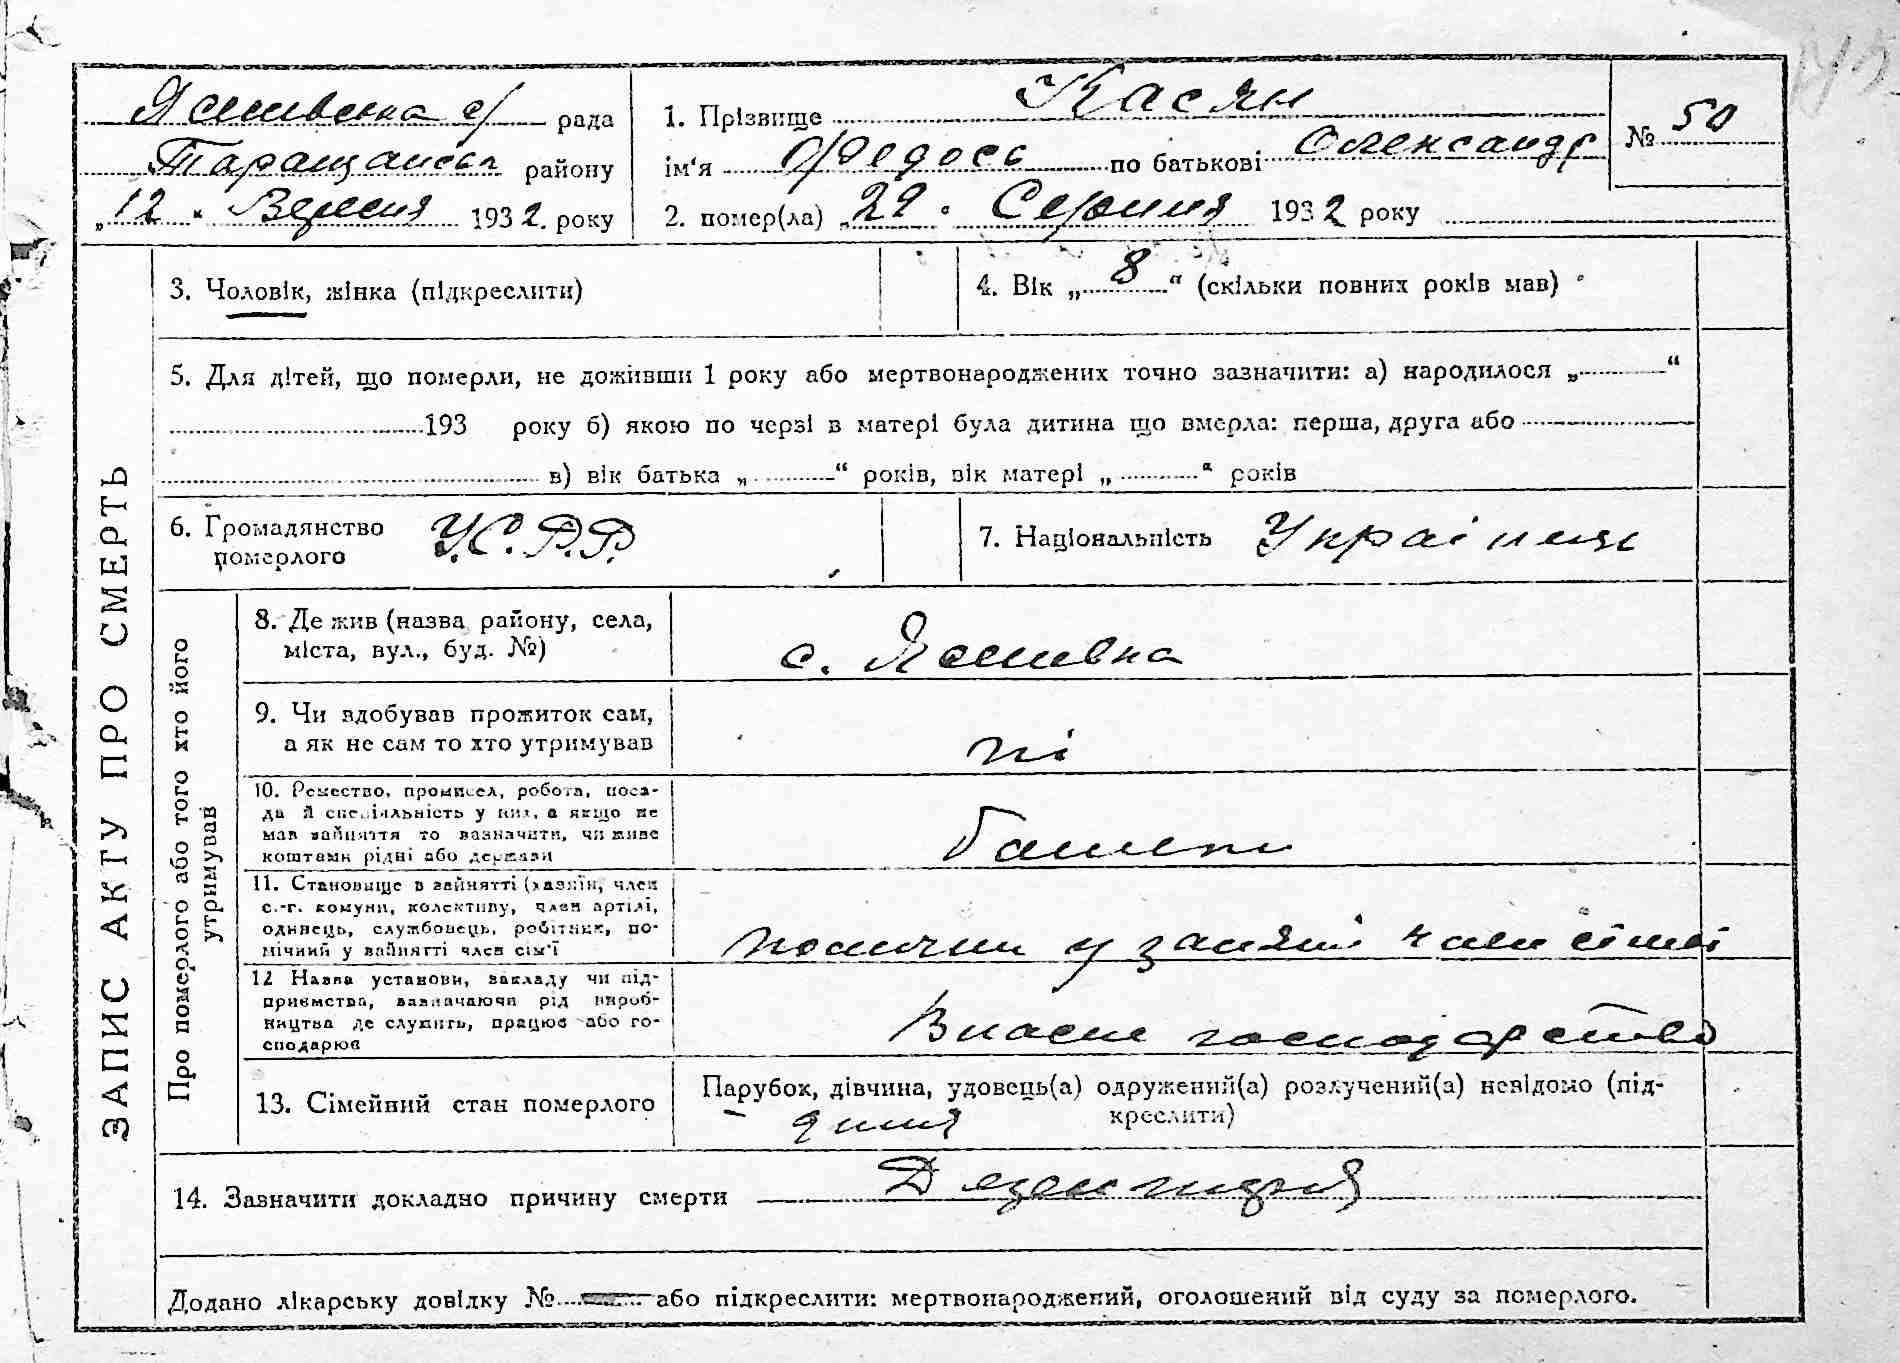 ЗАПИС АКТУ ПРО СМЕРТЬ
Ясинівська с/ рада
Таращанськ району
„12“ Вересня 1932. року
1. Прізвище Касян
ім‘я Федось по батькові Олександр
2. помер(ла) „29“ Серпня 1932 року
№ 50
3. Чоловік, жінка (підкреслити)
4. Вік „8“ (скільки повних років мав)
5. Для дітей, що померли, не доживши 1 року або мертвонароджених точно зазначити: а) народилося „ “
193 року б) якою по черзі в матері була дитина що вмерла: перша, друга або
в) вік батька „ “ років, вік матері „ “ років
6. Громадянство
померлого
У.С.Р.Р.
7. Національність Українн
Про померлого або того хто його
утримував
8. Де жив (назва району, села,
міста, вул., буд. №)
с. Ясинівка
9. Чи здобував прожиток сам,
а як не сам то хто утримував
ні
10. Ремество, промисел, робота, поса-
да й спеціяльність у них, а якщо не
мав зайняття то зазначити, чи живе
коштами рідні або держави
11. Становище в зайнятті (хазяїн, член
с.-г. комуни, колективу, член артілі,
одинець, службовець, робітник, по-
мічний у зайнятті член сім‘ї
помічни у занятті член сімї
12 Назва установи, закладу чи під-
приємства, зазначаючи рід вироб-
ництва де служить, працює або го-
сподарює
Власне господарство
13. Сімейний стан померлого
Парубок, дівчина, удовець(а) одружений(а) розлучений(а) невідомо (під-
креслити)
14. Зазначити докладно причину смерти Дезентирія
Додано лікарську довідку № або підкреслити: мертвонароджений, оголошений від суду за померлого.